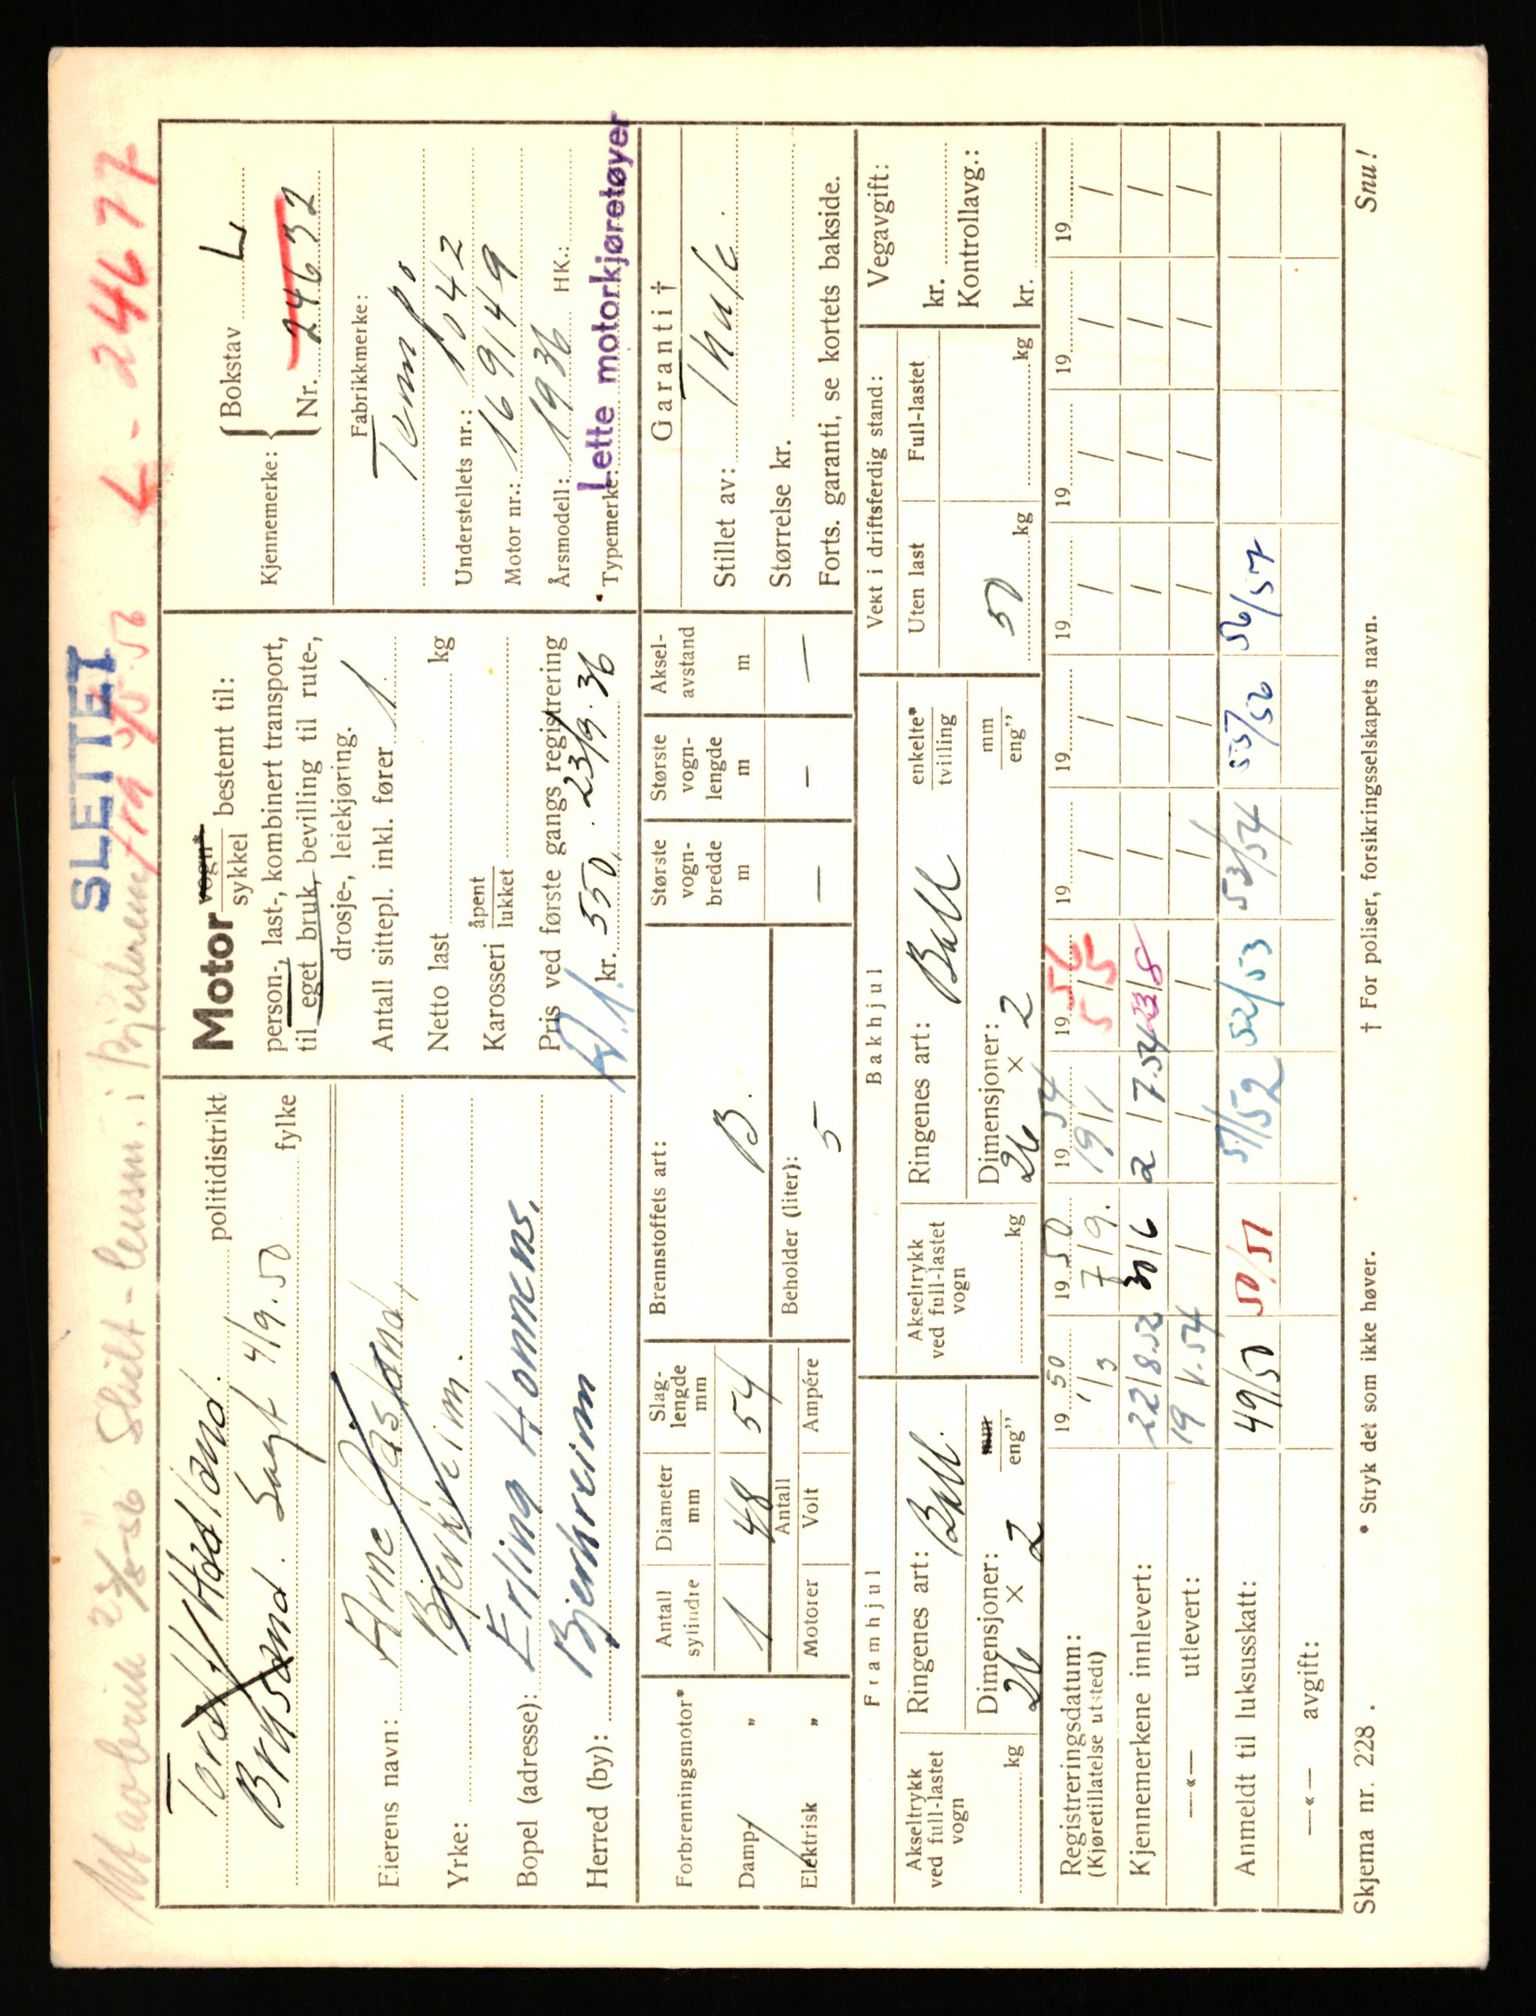 SLETTET
L - 24677
fra 3/5.56
Tora H Hadland.
politidistrikt
Brusand. Solgt 4/9.50
fylke
Eierens navn:
Arne
Yrke:
Bjerkreim.
Bopel (adresse): Erling Hommens.
Herred (by): Bjerkreim
Motor vogn* sykkel bestemt til:
person-, last-, kombinert transport,
til eget bruk, bevilling til rute-,
drosje-, leiekjøring.
Antall sittepl. inkl. fører 1.
Netto last kg
Karosseri åpent lukket
Pris ved første gangs registrering
kr. 550. 23/9.36
Kjennemerke: { Bokstav L
Nr. 24632
Fabrikkmerke:
Tempo
Understellets nr.: 1042
Motor nr.: 169149
Årsmodell: 1936 HK.:
* Typemerke: Lette motorkjøretøyer
Forbrenningsmotor*
Damp- "
Elektrisk "
Antall sylindre
Diameter mm
Slaglengde mm
1 48 54
Antall
Motorer Volt Ampére
Brennstoffets art:
B.
Beholder (liter):
5
Største vognbredde m
Største vognlengde m
Akselavstand m
— — —
Garanti †
Stillet av:
Størrelse kr.
Forts. garanti, se kortets bakside.
Framhjul
Akseltrykk ved full-lastet vogn
kg
Ringenes art: Ball.
Dimensjoner: mm eng"
26 × 2
Bakhjul
Akseltrykk ved full-lastet vogn
kg
Ringenes art: Ball
enkelte* tvilling
Dimensjoner: mm eng"
26 × 2
Vekt i driftsferdig stand:
Uten last Full-lastet
50 kg kg
Vegavgift:
kr.
Kontrollavg.:
kr.
Registreringsdatum:
(Kjøretillatelse utstedt)
19 50 19 50 19 54 19 56 19 19 19 19 19 19
1/3 7/9. 19/1 5/5 / / / / / /
Kjennemerkene innlevert:
22/8.52 30/6 2/7.54 23/8 / / / / / /
—«— utlevert:
19/1.54 / / / / / / / / /
Anmeldt til luksusskatt:
49/50 50/51 51/52 52/53 53/54 55/56 56/57
—«— avgift:
Skjema nr. 228.
* Stryk det som ikke høver.
† For poliser, forsikringsselskapets navn.
Snu!